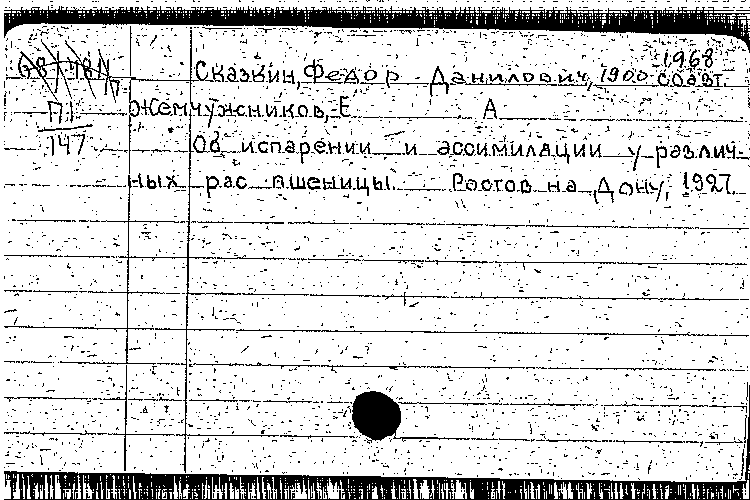 1968
Сказкин, Федор Данилович, 1900 соавт.
П1 Жемчужников, Е А
147
Об испарении и ассимиляции у различ-
ных рас пшеницы. Ростов на Дону, 1927.